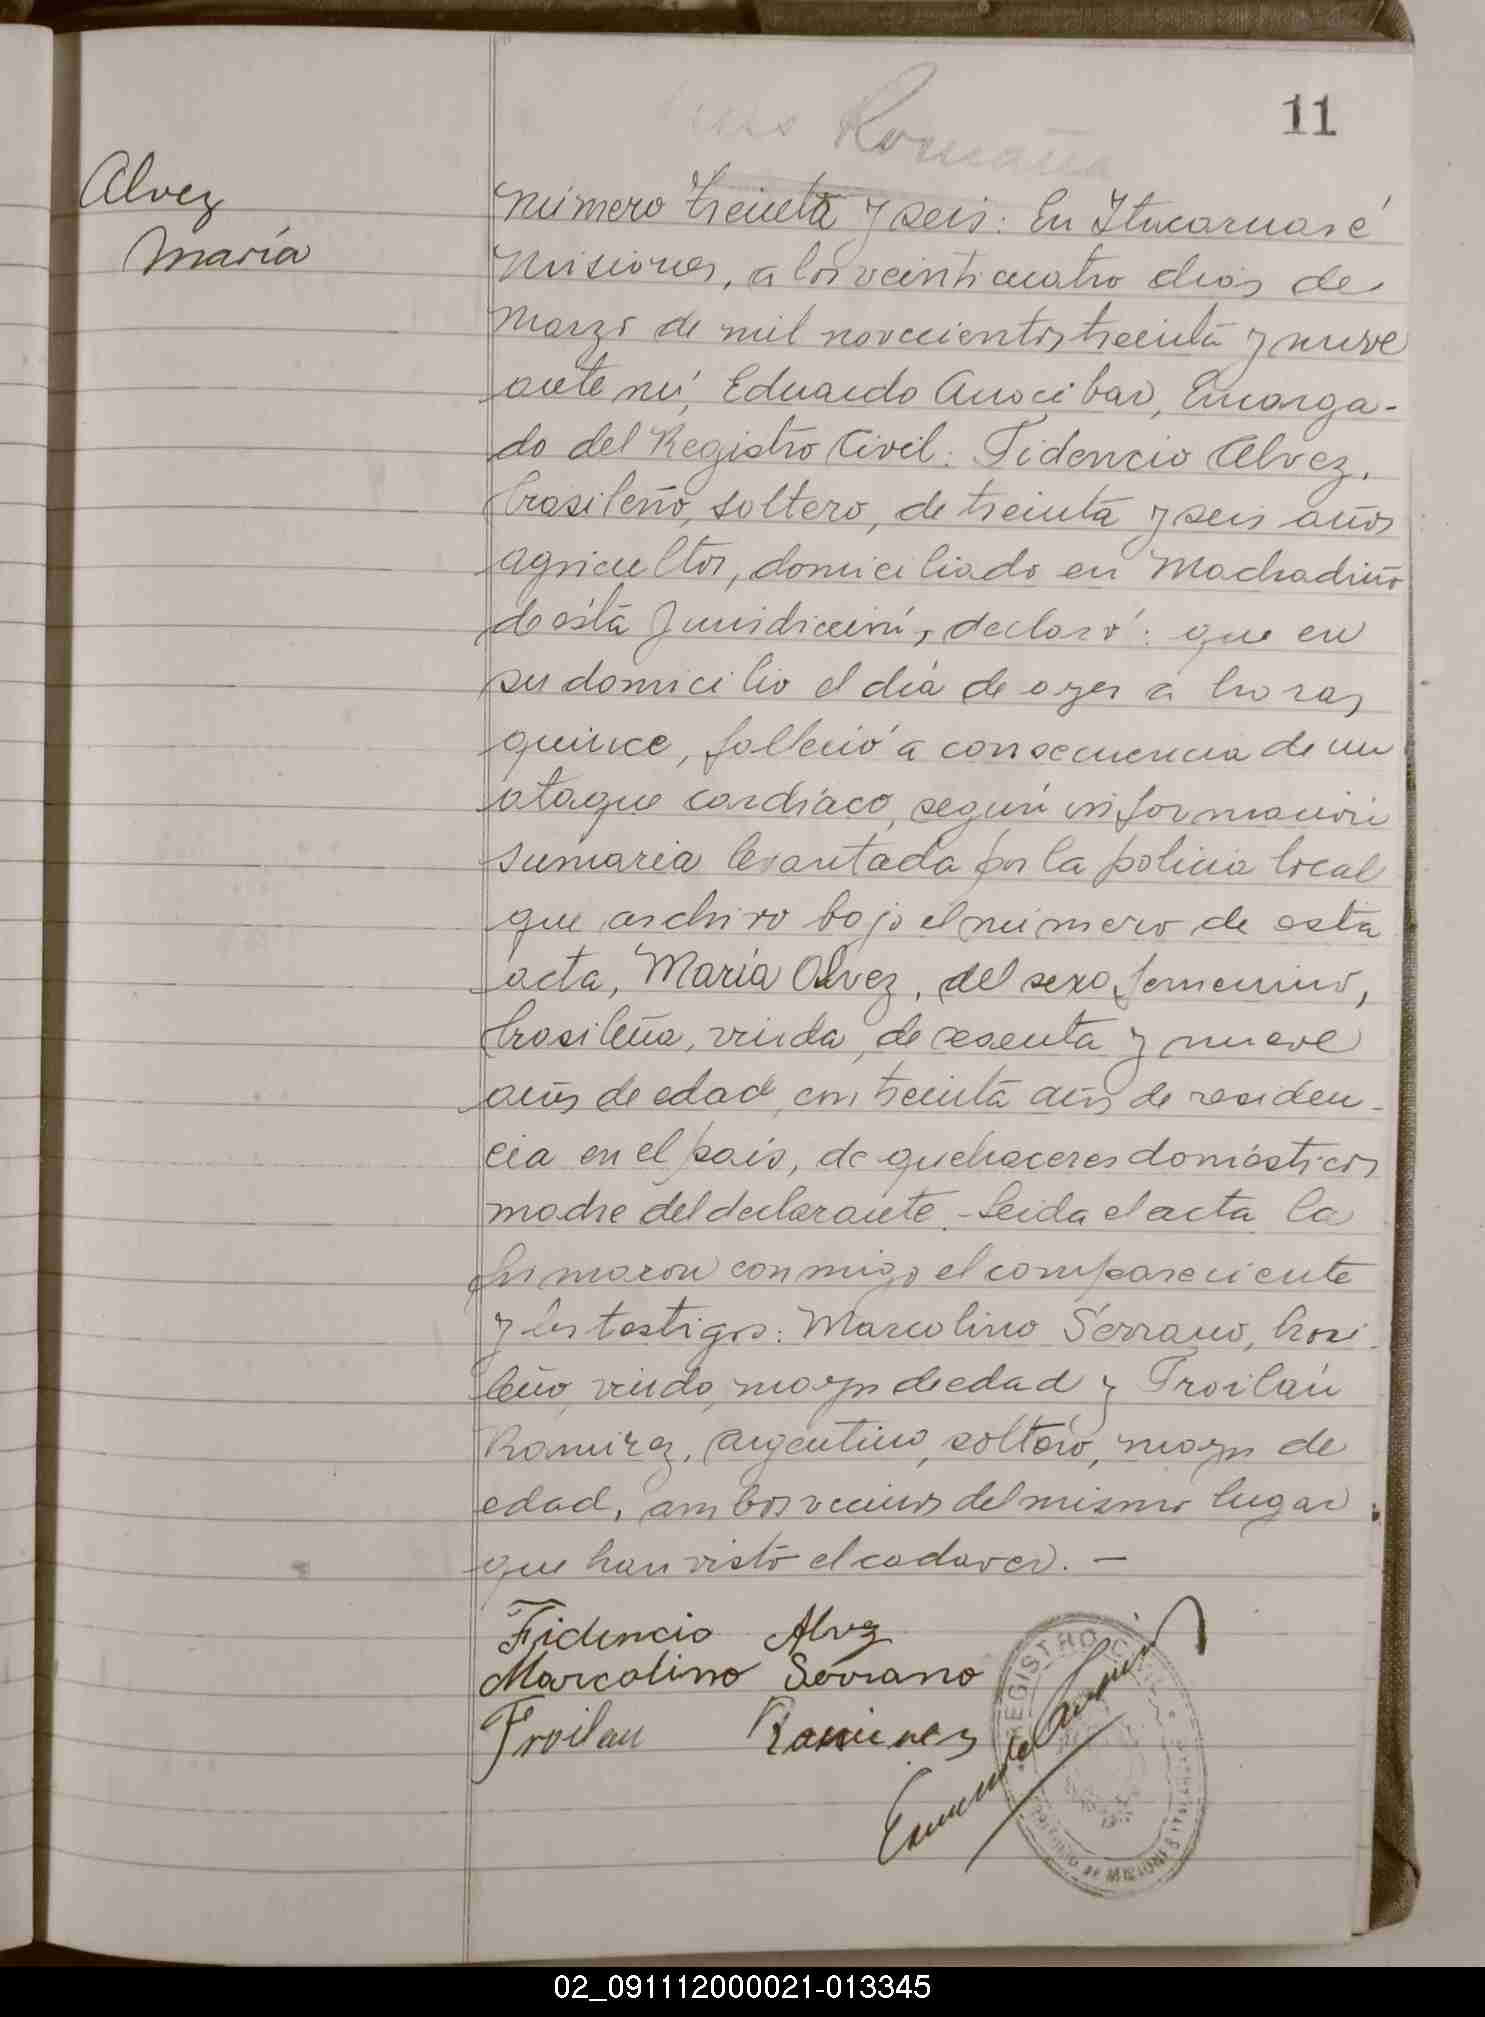 11
Romaña
Alvez
María
Número treinta y seis: En Itacaruaré
Misiones, a los veinticuatro dias de
Marzo de mil novecientos treinta y nueve
ante mí, Eduardo Anocibar, Encarga-
do del Registro Civil: Fidencio Alvez,
brasileño, soltero, de treinta y seis años
agricultor, domiciliado en Machadiño
de ésta Jurisdicción, declaró: que en
su domicilio el día de ayer a horas
quince, falleció a consecuencia de un
ataque cardíaco, según información
sumaria levantada por la policia local
que archivo bajo el número de esta
acta, María Alvez, del sexo femenino,
brasileña, viuda, de sesenta y nueve
años de edad, con treinta años de residen-
cia en el país, de quehaceres domésticos
madre del declarante.- Leida el acta la
firmaron conmigo el compareciente
y los testigos: Marcolino Serrano, brasi-
leño, viudo, mayor de edad y Troilán
Ramirez, argentino, soltero, mayor de
edad, ambos vecinos del mismo lugar
que han visto el cadaver. —
Fidencio Alvez
Marcolino Serrano
Troilan Ramirez
REGISTRO CIVIL
TERRITORIO DE MISIONES ITACARUARE
02_091112000021-013345